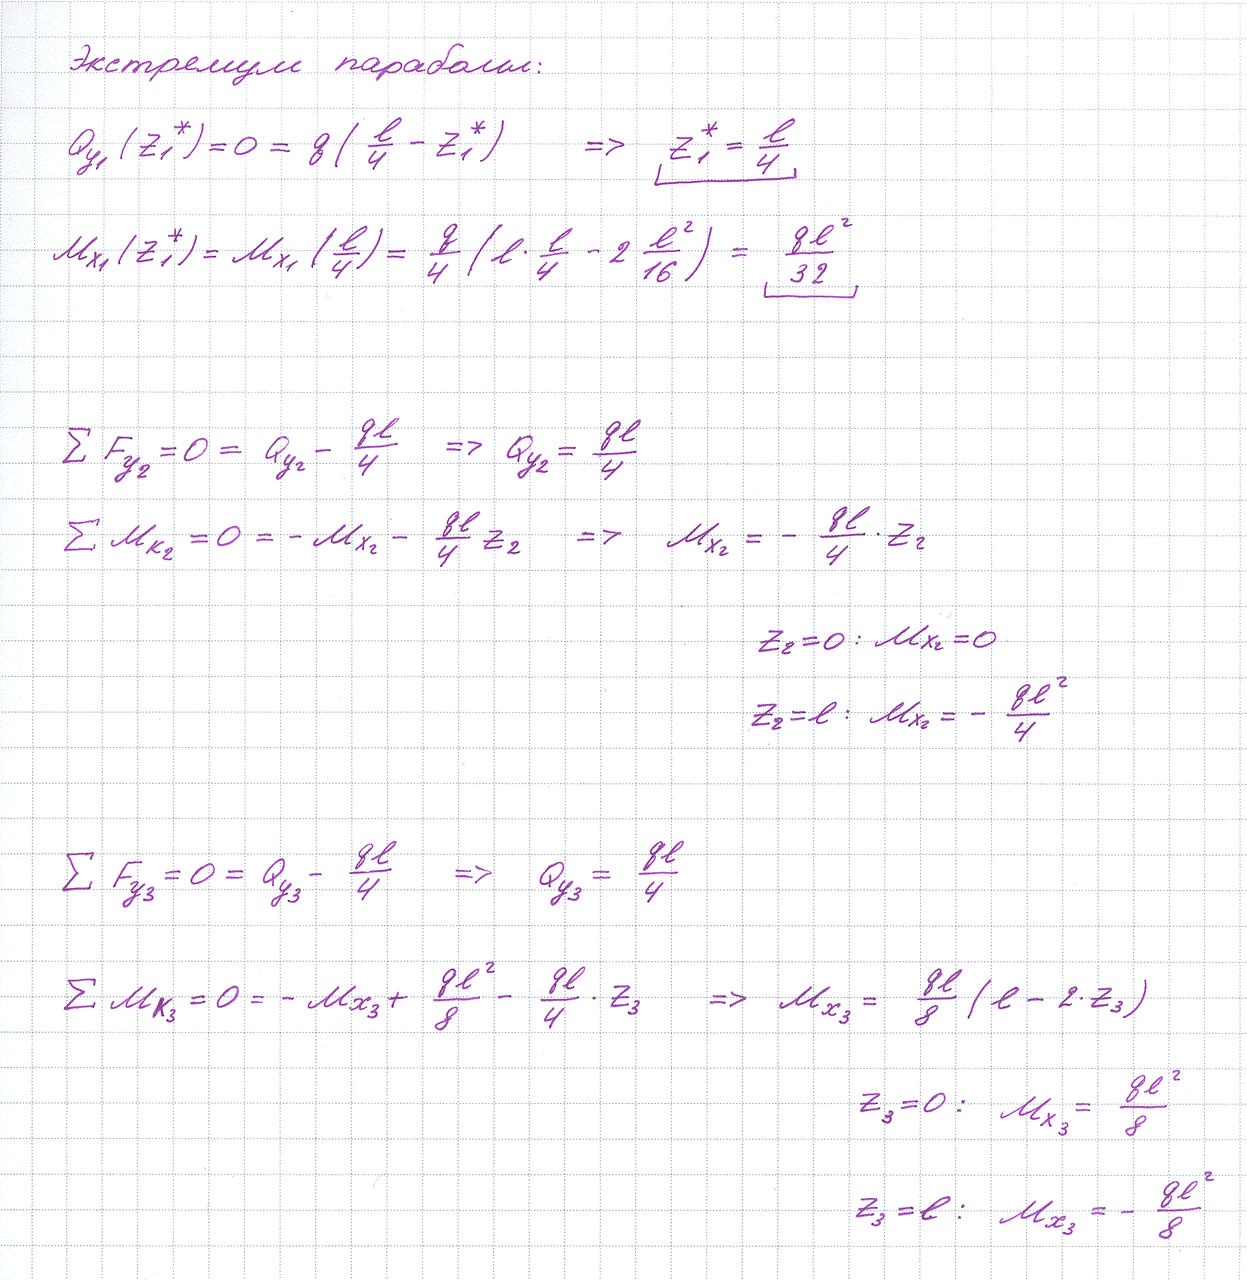 Экстремум параболы:
Q_{y_1}(z_1^*) = 0 = q(\frac{l}{4} - z_1^*) => z_1^* = \frac{l}{4}
M_{x_1}(z_1^*) = M_{x_1}(\frac{l}{4}) = \frac{q}{4}(l · \frac{l}{4} - 2\frac{l^2}{16}) = \frac{ql^2}{32}
∑ F_{y_2} = 0 = Q_{y_2} - \frac{ql}{4} => Q_{y_2} = \frac{ql}{4}
∑ M_{K_2} = 0 = - M_{x_2} - \frac{ql}{4} z_2 => M_{x_2} = - \frac{ql}{4} · z_2
z_2 = 0 : M_{x_2} = 0
z_2 = l : M_{x_2} = - \frac{ql^2}{4}
∑ F_{y_3} = 0 = Q_{y_3} - \frac{ql}{4} => Q_{y_3} = \frac{ql}{4}
∑ M_{K_3} = 0 = - M_{x_3} + \frac{ql^2}{8} - \frac{ql}{4} · z_3 => M_{x_3} = \frac{ql}{8}(l - 2·z_3)
z_3 = 0 : M_{x_3} = \frac{ql^2}{8}
z_3 = l : M_{x_3} = - \frac{ql^2}{8}